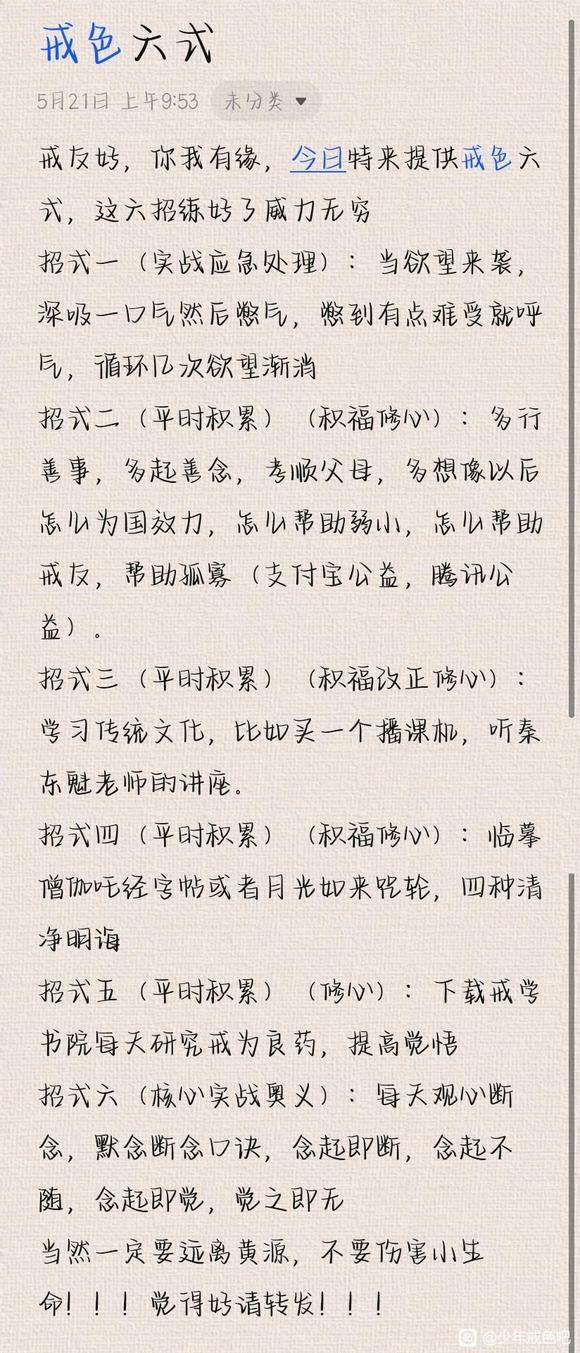 戒色六式
5月21日 上午9:53 未分类
戒友好，你我有缘，今日特来提供戒色六
式，这六招练好了威力无穷
招式一（实战应急处理）：当欲望来袭，
深吸一口气然后憋气，憋到有点难受就呼
气，循环几次欲望渐消
招式二（平时积累）（积福修心）：多行
善事，多起善念，孝顺父母，多想像以后
怎么为国效力，怎么帮助弱小，怎么帮助
戒友，帮助孤寡（支付宝公益，腾讯公
益）。
招式三（平时积累）（积福改正修心）：
学习传统文化，比如买一个播课机，听秦
东魁老师的讲座。
招式四（平时积累）（积福修心）：临摹
僧伽吒经字帖或者月光如来咒轮，四种清
净明诲
招式五（平时积累）（修心）：下载戒学
书院每天研究戒为良药，提高觉悟
招式六（核心实战奥义）：每天观心断
念，默念断念口诀，念起即断，念起不
随，念起即觉，觉之即无
当然一定要远离黄源，不要伤害小生
命！！！觉得好请转发！！！
@少年戒色吧